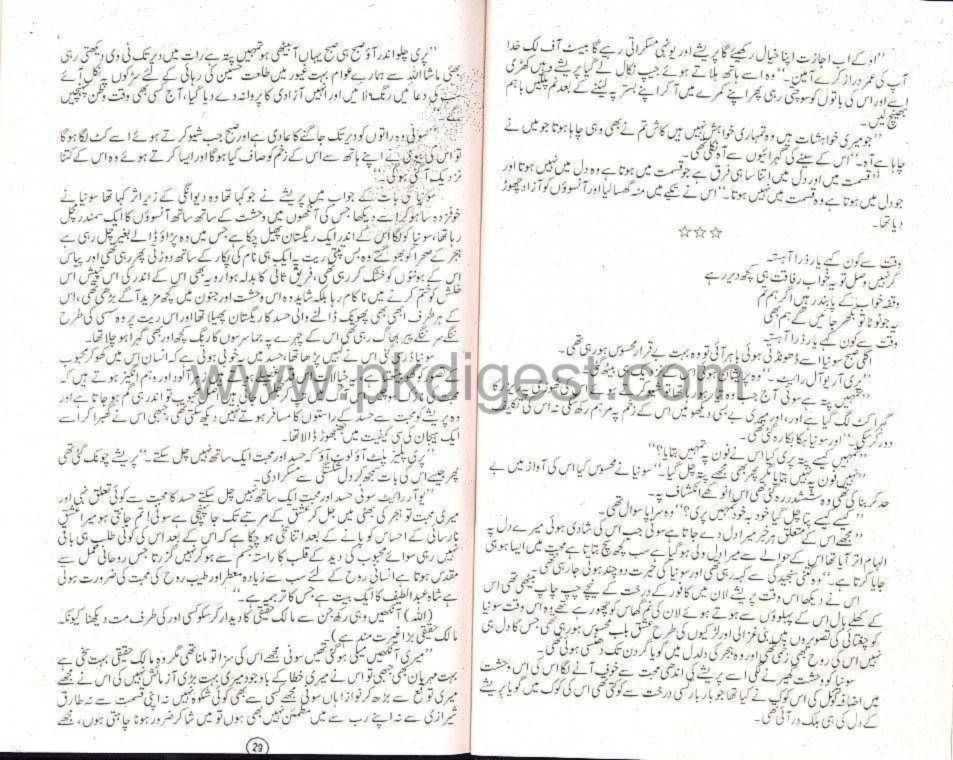 "اوکے اب اجازت اپنا خیال رکھیے گا پریشے اور یونہی مسکراتی رہے گا بیسٹ آف لک خدا
آپ کی عمر دراز کرے آمین۔" وہ اسے ہاتھ ہلاتے ہوئے جیپ نکال لے گیا پریشے وہیں کھڑی
اسے اور اس کی باتوں کو سوچتی رہی پھر اپنے کمرے میں آ کر اپنے بستر پہ لیٹنے کے بعد نم پلکیں باہم
بھینچ لیں۔
"جو میری خواہشات ہیں وہ تمہاری خواہش نہیں ہیں کاش تم نے بھی وہی چاہا ہوتا جو میں نے
چاہا ہے آہ۔" اس کے سینے کی گہرائیوں سے آہ نکلی تھی۔
"قسمت میں اور دل میں اتنا سا ہی فرق ہے جو قسمت میں ہوتا ہے وہ دل میں نہیں ہوتا اور
جو دل میں ہوتا ہے وہ قسمت میں نہیں ہوتا۔" اس نے تکیے میں منہ گھسا لیا اور آنسوؤں کو آزاد چھوڑ
دیا تھا۔
☆☆☆
وقت سے کون کہے یار ذرا آہستہ
گر نہیں وصل تو یہ خواب رفاقت ہی کچھ دیر رہے
وقفہ خواب کے پابند ہیں اگر ہم تم
یہ جو ٹوٹا تو بکھر جائیں گے ہم بھی
وقت سے کون کہے یار ذرا آہستہ
اگلی صبح سونیا اسے ڈھونڈتی ہوئی باہر آئی تو وہ بہت بے قرار محسوس ہو رہی تھی۔
"پری آر یو آل رائٹ۔" وہ
"تمہیں پتہ ہے سونی آج
گہرا کٹ لگ گیا ہے، اور میری بے بسی دیکھو میں اس کے زخم پہ مرہم رکھ سکتی نہ اس کی تکلیف
دور کر سکتی۔" اور سونیا ہکا بکا رہ گئی تھی۔
"تمہیں کیسے پتہ پری کیا اس نے فون پہ تمہیں بتایا؟"
"نہیں فون پہ نہیں بتایا مگر پھر بھی مجھے پتہ چل گیا۔" سونیا نے محسوس کیا اس کی آواز میں بے
حد کرب تھا وہ ششدر رہ گئی تھی اس انوکھے انکشاف پہ۔
"کیسے پتا چل گیا خود بہ خود تمہیں پری؟" وہ سراپا سوال تھی۔
"مجھے اس کے متعلق ہر خبر میرا دل دے جاتا ہے سونی جب اس کی شادی ہوئی میرے دل پہ
الہام اترا تھا اس کے حوالے سے میرا دل ولی ہو گیا ہے سب کچھ سچ بتاتا ہے محبت میں ایسا ہو ہی
جایا کرتا ہے۔" وہ کتنی سنجیدگی سے کہہ رہی تھی اور سونیا کی حیرت دو چند ہوئی جا رہی تھی۔
اس نے دیکھا اس وقت پریشے لان میں کانور کے درخت کے نیچے چپ چاپ بیٹھی تھی اس
کے کھلے بال اس کے پہلوؤں سے ہوتے ہوئے لان کی نم گھاس کو چھو رہے تھے وہ اس وقت سونیا
کو چغتائی کی تصویروں میں بنی غزالی اور لڑکیوں کی طرح عشق بلب محسوس ہو رہی تھی جس کا دل ہی
نہیں اس کی روح بھی زخمی تھی اور وہ ہجر کی دلدل میں گویا گردن تک دھنسی ہوئی تھی۔
سونیا کو وحشت گھیرنے لگی اسے پریشے کی اندھی محبت سے خوف آنے لگا اس کی اس وحشت
میں اضافہ کوئل کی اس کوک نے کیا تھا جو بار بار کسی درخت سے کوکتی تھی اس کی کوک میں گویا پریشے
کے دل کی ہی بلک در آئی تھی۔
"پری چلو اندر آؤ صبح ہی صبح یہاں آ بیٹھی ہو تمہیں پتہ ہے رات میں دیر تک ٹی وی دیکھتی رہی
بھئی ماشا اللہ سے ہمارے عوام بہت غیور ہیں طلعت حسین کی رہائی کے لئے سڑکوں پہ نکل آئے
کی دعائیں رنگ لائیں اور انہیں آزادی کا پروانہ دے دیا گیا، آج کسی بھی وقت وطن پہنچیں
گے۔
"سونی وہ راتوں کو دیر تک جاگنے کا عادی ہے اور صبح جب شیو کرتے ہوئے اسے کٹ لگا ہو گا
تو اس کی بیوی نے اپنے ہاتھ سے اس کے زخم کو صاف کیا ہو گا اور ایسا کرتے ہوئے وہ اس کے کتنا
نزدیک آ گئی ہو گی۔"
سونیا کی بات کے جواب میں پریشے نے جو کہا تھا وہ دیوانگی کے زیر اثر کہا تھا سونیا نے
خوفزدہ سا ہو کر اسے دیکھا جس کی آنکھوں میں وحشت کے ساتھ ساتھ آنسوؤں کا ایک سمندر مچل
رہا تھا، سونیا کو لگا اس کے اندر ایک ریگستان پھیل چکا ہے جس میں وہ پڑاؤ ڈالے بغیر چل رہی ہے
ہجر کے صحرا کو بھوگتے وہ بس تپتی ریت پہ ایک ہی نام کی پکار کے ساتھ دوڑتی پھر رہی تھی اور پیاس
اس کے ہونٹوں کو خشک کر رہی تھی، فریق ثانی کا بدلہ ہوا رویہ بھی اس کے اندر کی اس تپش اس
خلش کو ختم کرنے میں ناکام رہا بلکہ شاید وہ اس وحشت اور جنون میں کچھ مزید آگے بڑھی تھی، اس
کے ہر طرف ابھی بھی پھونک ڈالنے والی حسد کا ریگستان پھیلا تھا اور اس ریت پر وہ سسی کی طرح
ننگے سر ننگے پیر بھاگ رہی تھی اس کے چہرے پہ جما سرسوں کا رنگ کچھ اور بھی گہرا ہو چلا تھا۔
سونیا ڈر گئی اس نے کہیں پڑھا تھا، حسد میں یہ خوبی ہوتی ہے کہ انسان اس میں کھو کر محبوب
وہ پریشے کو محبت سے حسد کے راستوں کا مسافر ہوتے نہیں دیکھ سکتی تھی، جبھی اس نے گھبرا کر اسے
ایک ہیجان کی سی کیفیت میں جھنجھوڑ ڈالا تھا۔
"پری پلیز پلٹ آؤ لوٹ آؤ کہ حسد اور محبت ایک ساتھ نہیں چل سکتے۔" پریشے چونک گئی تھی
پھر جیسے اس کی بات سمجھ کر دل شکستگی سے مسکرا دی۔
"یو آر رائٹ سونی حسد اور محبت ایک ساتھ نہیں چل سکتے حسد کا محبت سے کوئی تعلق نہیں اور
میری محبت تو ہجر کی بھٹی میں جل کر عشق کے مرتبے تک جا پہنچی ہے سونی! تم جانتی ہو میرا عشق
نارسائی کے احساس کو پانے کے بعد اتنا سخی ہو چکا ہے کہ اس کے بعد اس کی کوئی طلب ہی باقی
نہیں رہی سوائے محبوب کی دید کے قلب کا راستہ جسم سے ہو کر نہیں گزرتا جس روحانی عمل سے
مقدس ہوتا ہے انسانی روح کے لئے سب سے زیادہ معطر اور طیب روح کی محبت کی ضرورت ہوتی
ہے شاہ عبداللطیف کا ایک بیت ہے جس کا ترجمہ ہے۔"
(اللہ) آنکھیں وہی رکھ جن سے مالک حقیقی کا دیدار کر سکو کسی اور کی طرف مت دیکھنا کیونکہ
مالک حقیقی بڑا غیرت مند ہے)۔
"میری آنکھیں میلی ہو گئی تھیں سونی مجھے اس کی سزا تو ملنا تھی مگر وہ مالک حقیقی بہت سخی ہے
بہت مہربان بھی جبھی تو اس نے میری خطا کے باوجود میری بہت بڑی آزمائش نہیں کی اس نے مجھے
میری توقع سے بڑھ کر نوازا ہاں سونی مجھے کسی سے بھی کوئی شکوہ نہیں نہ اپنی قسمت سے نہ طارق
شیرازی سے نہ اپنے رب سے میں مطمئن نہیں بھی ہوں تو میں شاکر ضرور ہونا چاہتی ہوں، مجھے
29
www.pkdigest.com